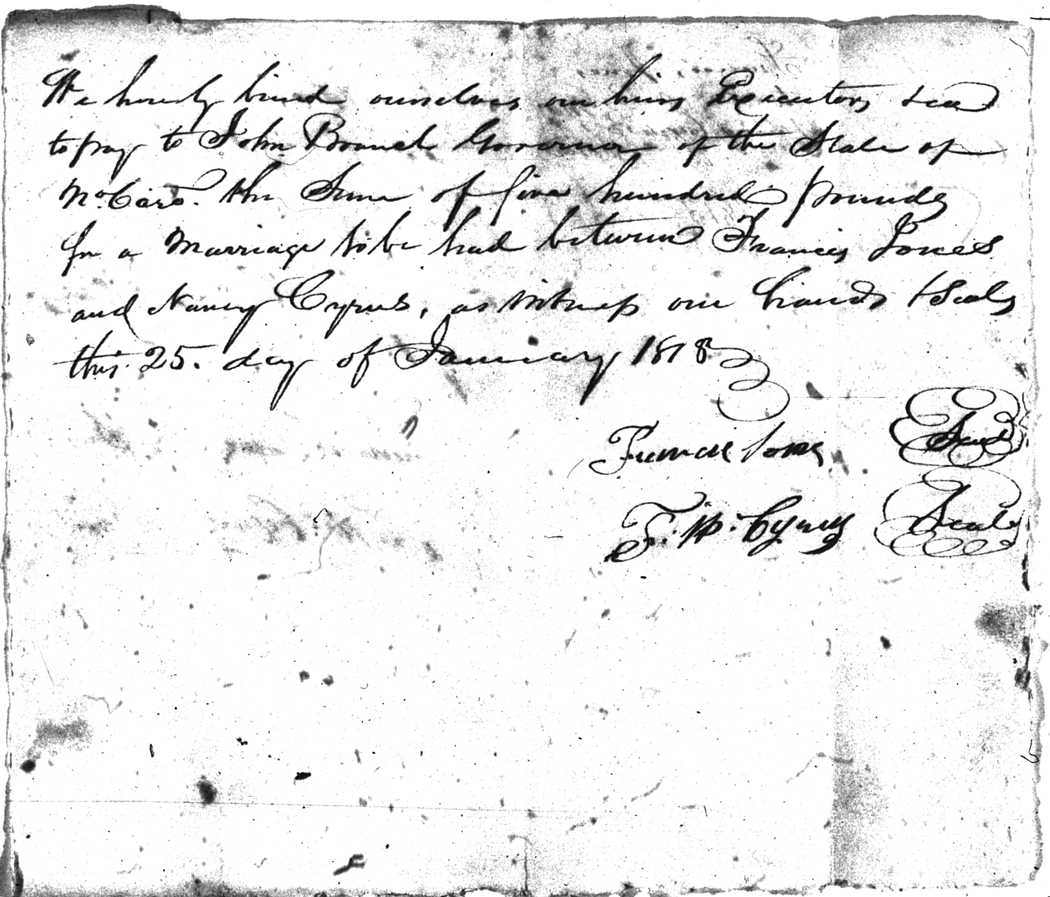 We hereby bind ourselves our heirs Executors &ca
to pay to John Branch Governor of the State of
No. Caro. the Sum of five hundred pounds
for a Marriage to be had between Francis Jones
and Nancy Cyrus, as witness our hands & Seals
this 25. day of January 1818
Francis Jones Seal
F. W. Cyrus Seal